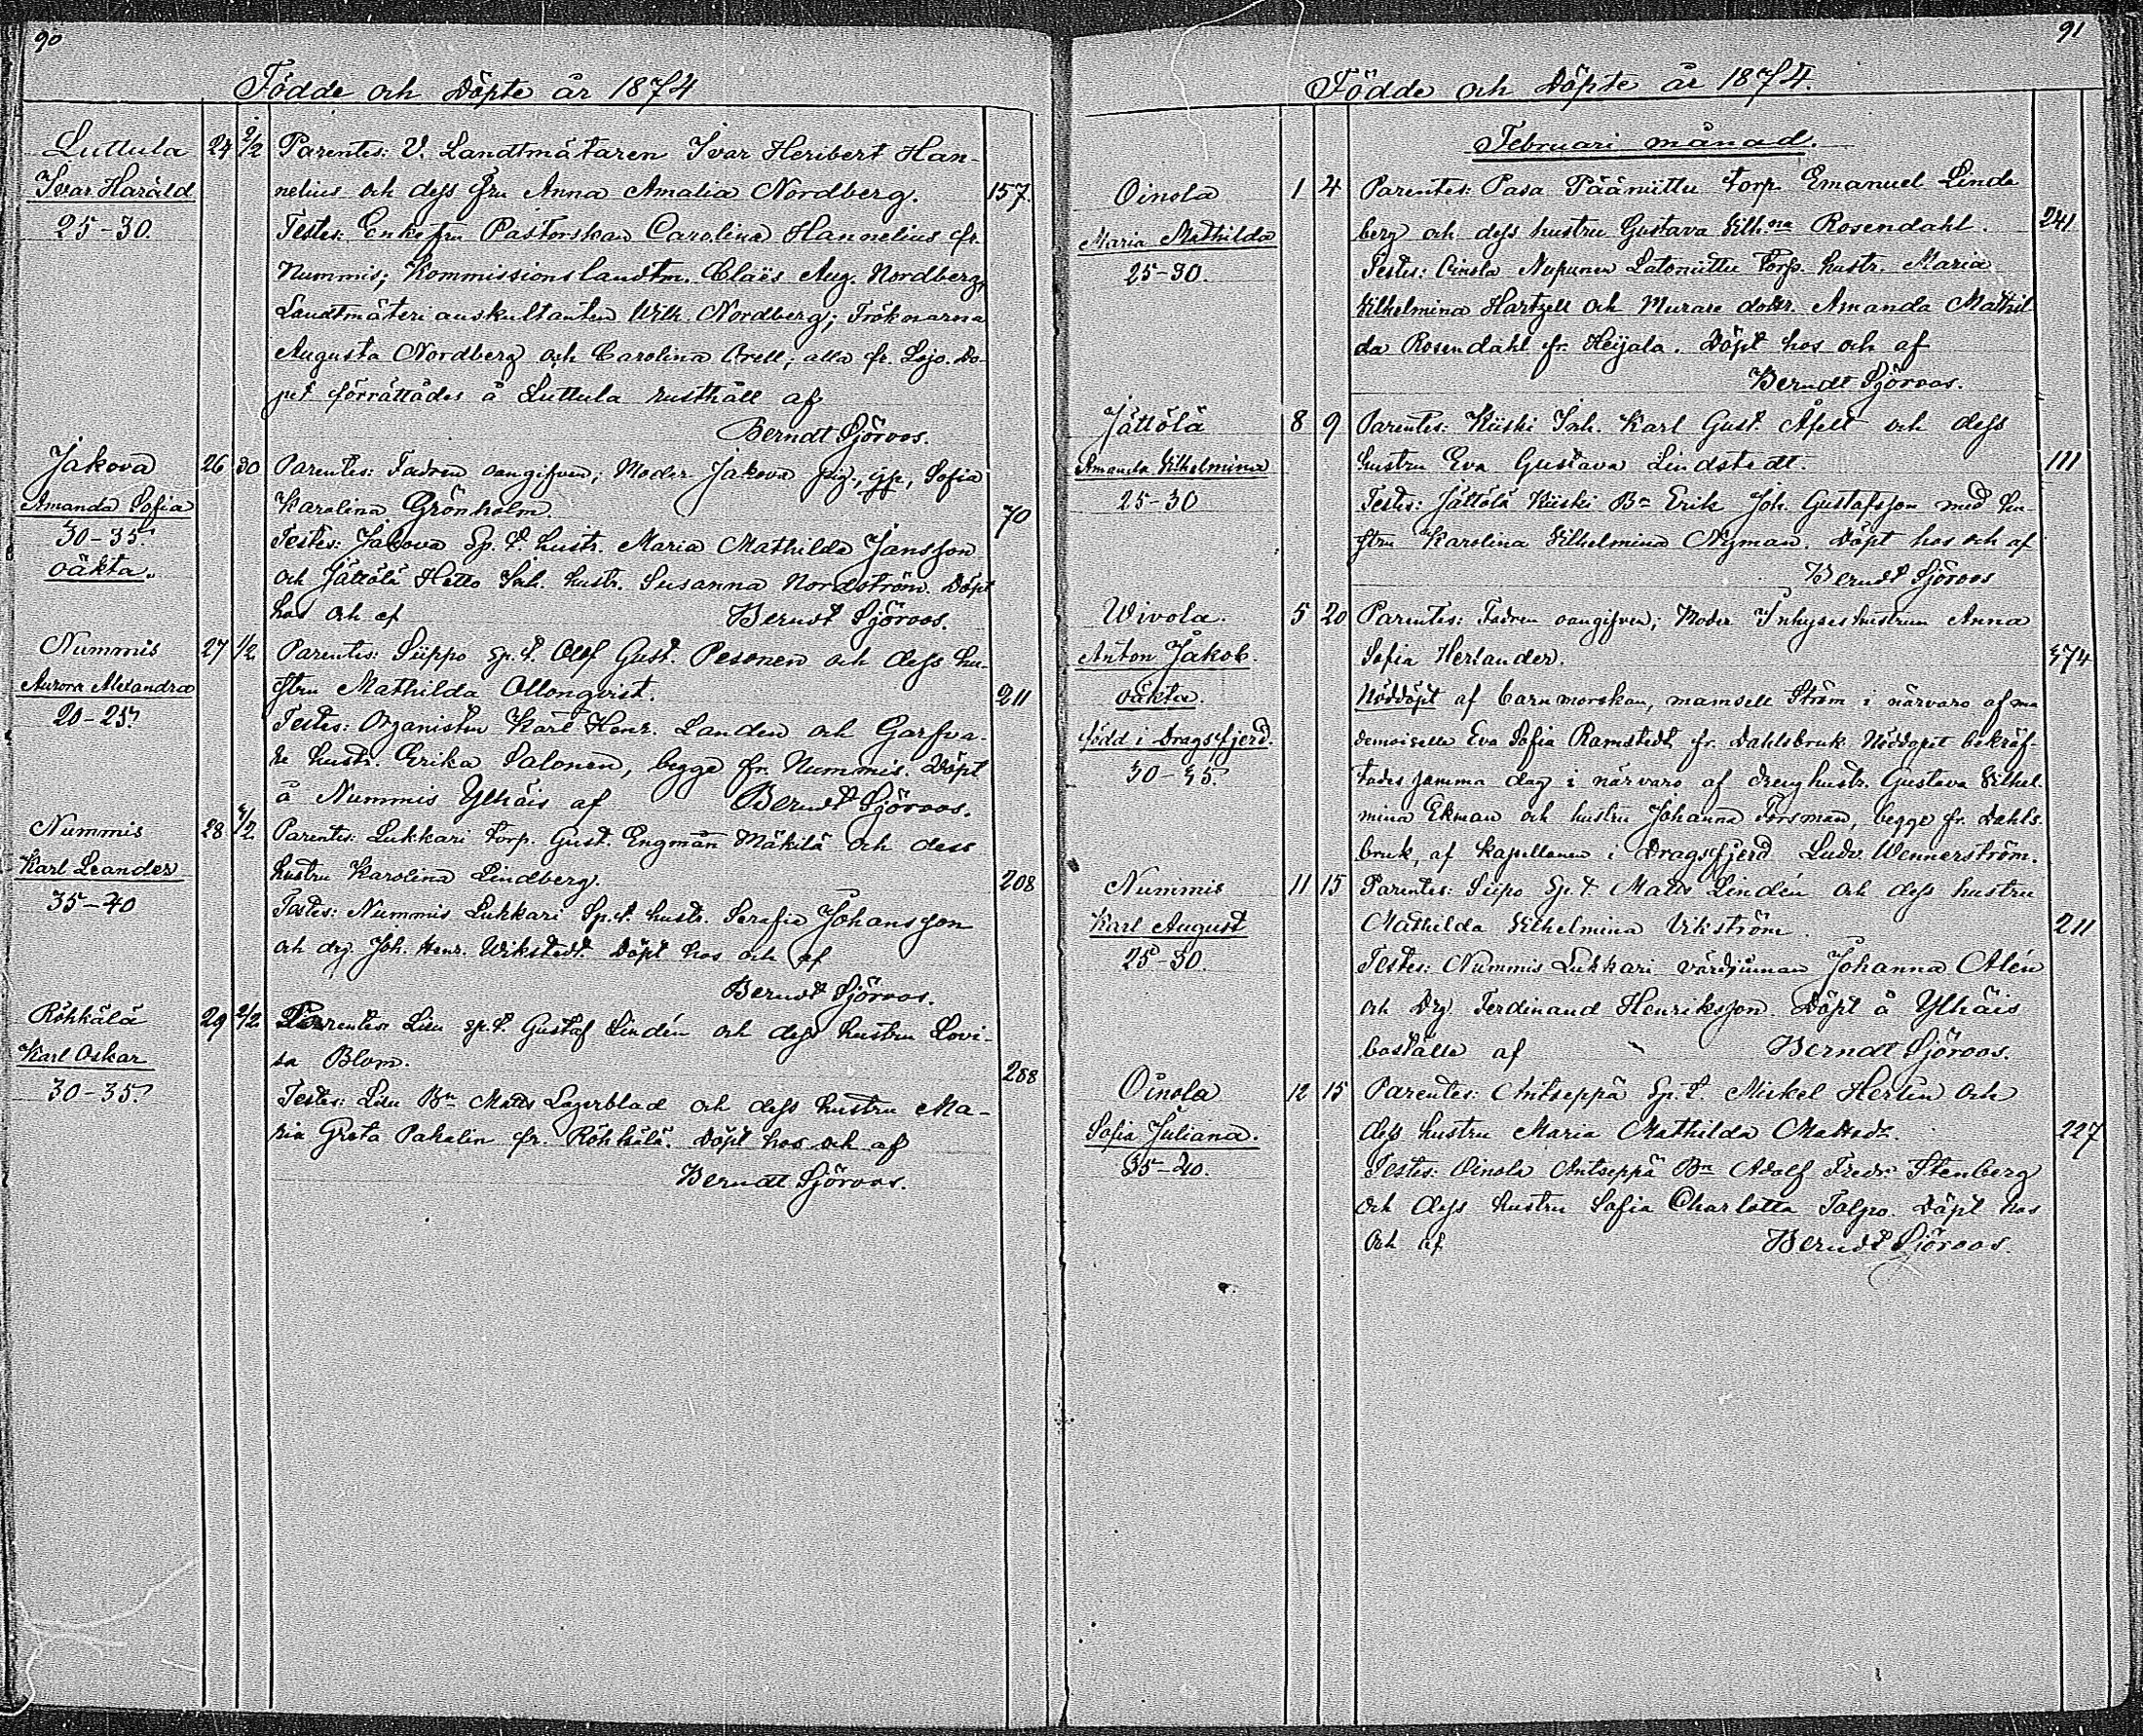 90
Födde och Döpte år 1874
Luttula 24 2/2 Parentes: V. Landtmätaren Ivar Heribert Han-
Ivar Harald nelius och dess fru Anna Amalia Nordberg. 157.
25-30. Testes: Enkefru Pastorskan Carolina Hannelius fr.
Nummis; Kommissionslandtm. Claës Aug. Nordberg,
Landtmäteriauskultanten Wilh. Nordberg; Fröknarna
Augusta Nordberg och Carolina Orell; alla fr. Lojo. Do-
pet förrättades å Luttula rusthåll af
Berndt Sjöroos.
Jakova 26 30 Parentes: Fadren oangifven; Moder Jakova pig., Sofia
Amanda Sofia Karolina Grönholm. 70
30-35. Testes: Jakova Sp. t. hustr. Maria Mathilda Jansson
oäkta. och Jättölä Hetto Inh. hustr. Susanna Nordström. Döpt
hos och af Berndt Sjöroos.
Nummis 27 1/2 Parentes: Siippo Sp. t. Olof Gust. Pesonen och dess hu-
Aurora Alexandra stru Mathilda Ollonqvist. 211
20-25. Testes: Organisten Karl Henr. Landen och Garfva-
re hustr. Erika Salonen, begge fr. Nummis. Döpt
å Nummis Ylhäis af Berndt Sjöroos.
Nummis 28 /2 Parentes: Lukkari torp. Gust. Engman Mäkilä och dess
Karl Leander hustru Karolina Lindberg. 208
35-40 Testes: Nummis Lukkari Sp. t. hustr. Serafia Johansson
och drg. Joh. Henr. Wikstedt. Döpt hos och af
Berndt Sjöroos.
Röhkälä 29 2/2 Parentes Lisu sp. t. Gustaf Lindén och dess hustru Lovi-
Karl Oskar sa Blom. 288
30-35. Testes: Lisu Bn Matts Lagerblad och dess hustru Ma-
ria Greta Pahalin fr. Röhkälä. Döpt hos och af
Berndt Sjöroos.
91
Födde och Döpte år 1874.
Februari månad.
Oinola 1 4 Parentes: Pasa Pääniittu torp. Emanuel Linde
Maria Mathilda berg och dess hustru Gustava Vilh:na Rosendahl. 241
25-30. Testes: Oinola Nupunen Latoniittu torp. hustr. Maria
Vilhelmina Hartzell och Murare dotter. Amanda Mathil
da Rosendahl fr. Heijala. Döpt hos och af
Berndt Sjöroos.
Jättölä 8 9 Parentes: Kiiski Inh. Karl Gust. Åfelt och dess
Amanda Vilhelmina hustru Eva Gustava Lindstedt. 111
25-30 Testes: Jättölä Kiiski Bn Erik Joh. Gustafsson med hu-
stru Karolina Vilhelmina Nyman. Döpt hos och af
Berndt Sjöroos
Wivola. 5 20 Parentes: Fadren oangifven; Moder Inhyseshustrun Anna
Anton Jakob. Sofia Herlander. 374
oäkta. Nöddöpt af barnmorskan, mamsell Ström i närvaro af ma
född i Dragsfjerd. demoiselle Eva Sofia Ramstedt fr. Dahlsbruk. Nöddopet bekräf-
30-35. tades samma dag i närvaro af drenghustr. Gustava Vilhel-
mina Ekman och hustru Johanna Forsman, begge fr. Dahls-
bruk, af kapellanen i Dragsfjerd Ludv. Wennerström.
Nummis 11 15 Parentes: Siipo Sp. t. Matts Lindén och dess hustru
Karl August Mathilda Vilhelmina Vikström. 211
25-30. Testes: Nummis Lukkari värdinnan Johanna Alén
och Drg. Ferdinand Henriksson. Döpt å Ylhäis
boställe af Berndt Sjöroos.
Oinola 12 15 Parentes: Antseppä Sp. t. Mickel Herlin och
Sofia Juliana. dess hustru Maria Mathilda Mattsdr. 227
35-40. Testes: Oinola Antseppä Bn Adolf Fredr. Stenberg
och dess hustru Sofia Charlotta Talpo. Döpt hos
och af Berndt Sjöroos.